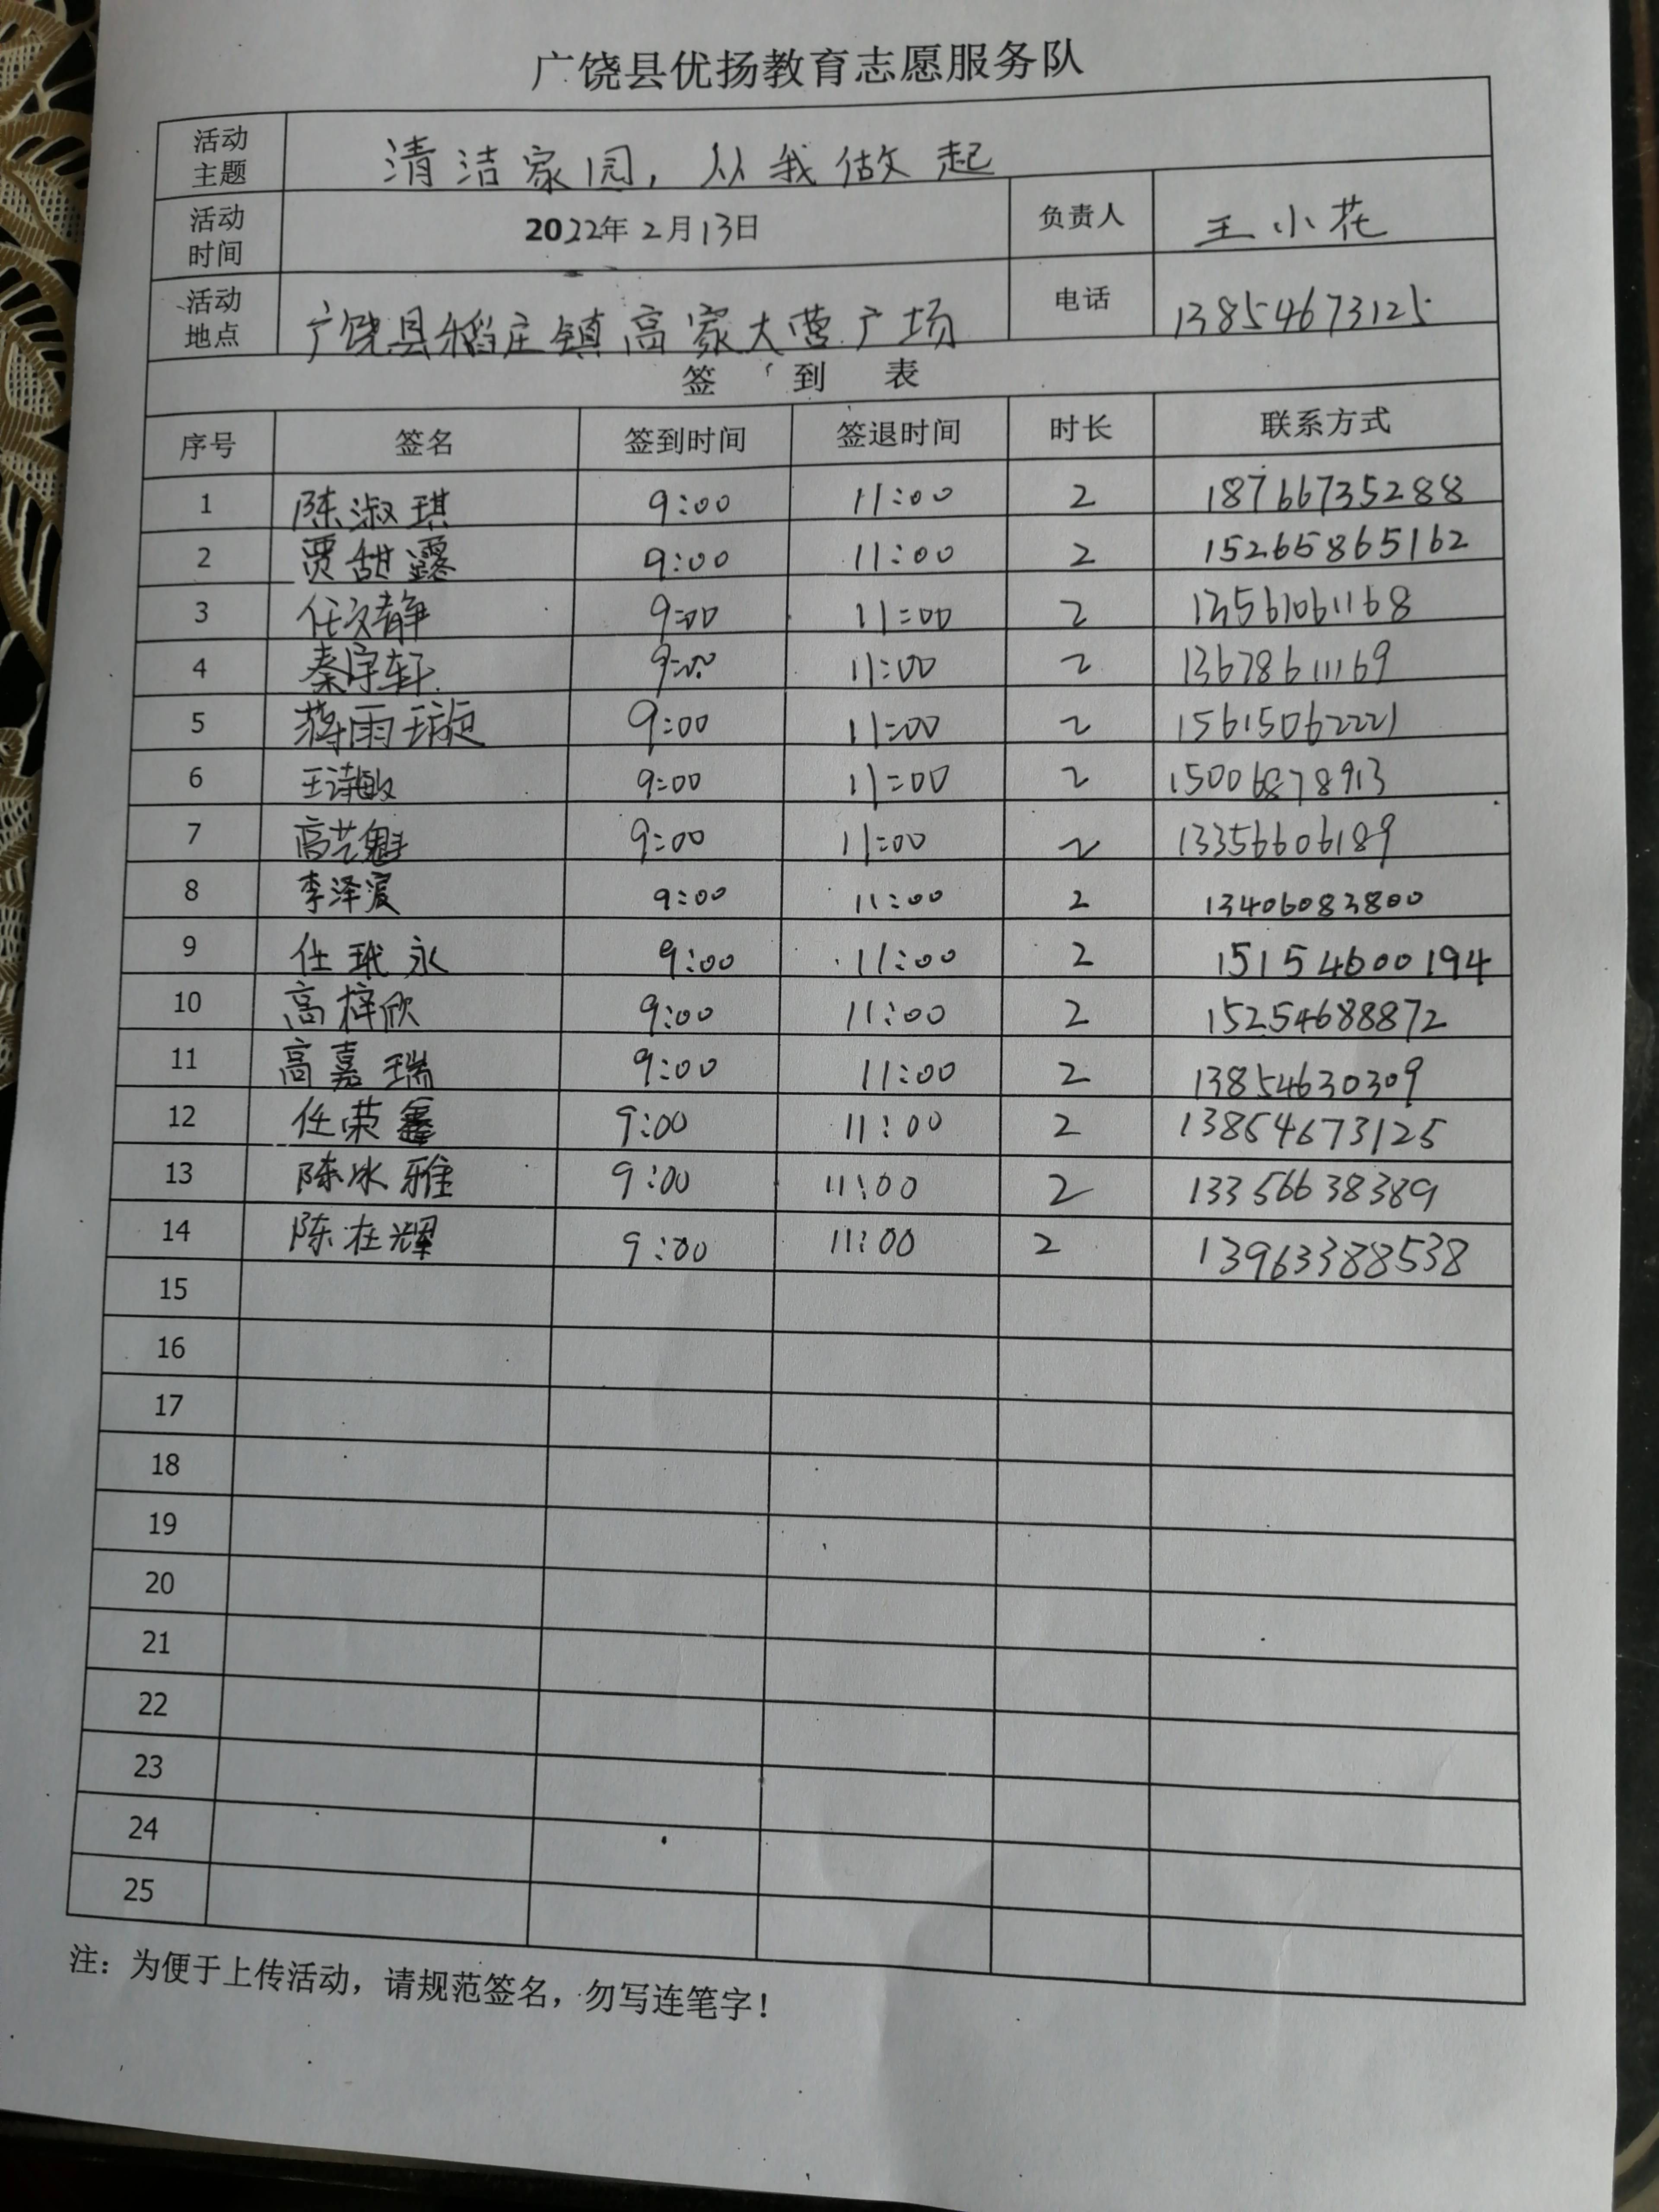 广饶县优扬教育志愿服务队
活动主题 清洁家园，从我做起
活动时间 2022年2月13日 负责人 王小花
活动地点 广饶县稻庄镇高家大营广场 电话 13854673125
签到表
序号 签名 签到时间 签退时间 时长 联系方式
1 陈淑琪 9:00 11:00 2 18766735288
2 贾甜露 9:00 11:00 2 15265865162
3 任文静 9:00 11:00 2 13561061168
4 秦宇轩 9:00 11:00 2 13678611169
5 蒋雨璇 9:00 11:00 2 15615062221
6 王诗敏 9:00 11:00 2 15006878913
7 高艺魁 9:00 11:00 2 13356606189
8 李泽 9:00 11:00 2 13406083800
9 任玳永 9:00 11:00 2 15154600194
10 高梓欣 9:00 11:00 2 15254688872
11 高嘉瑞 9:00 11:00 2 13854630309
12 任荣鑫 9:00 11:00 2 13854673125
13 陈冰雅 9:00 11:00 2 13356638389
14 陈在辉 9:00 11:00 2 13963388538
15
16
17
18
19
20
21
22
23
24
25
注：为便于上传活动，请规范签名，勿写连笔字！